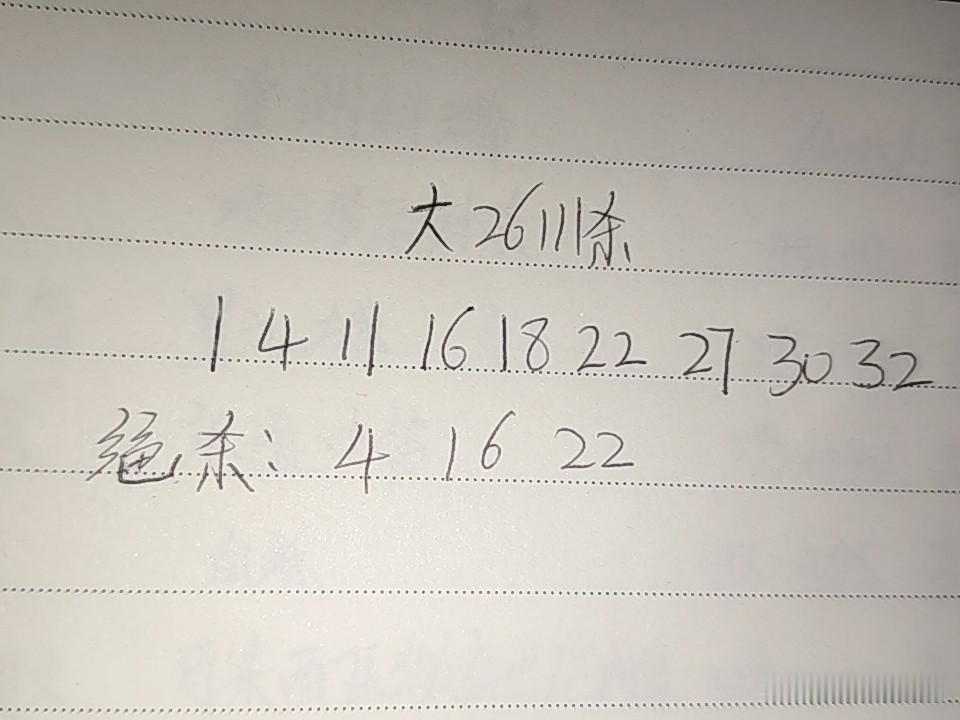 大26111杀
1 4 11 16 18 22 27 30 32
绝杀: 4 16 22